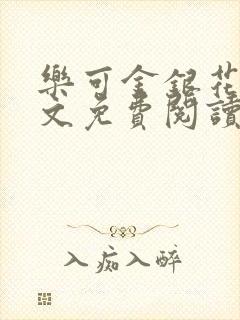 樂可金銀花
文免費閱讀
入痴入醉